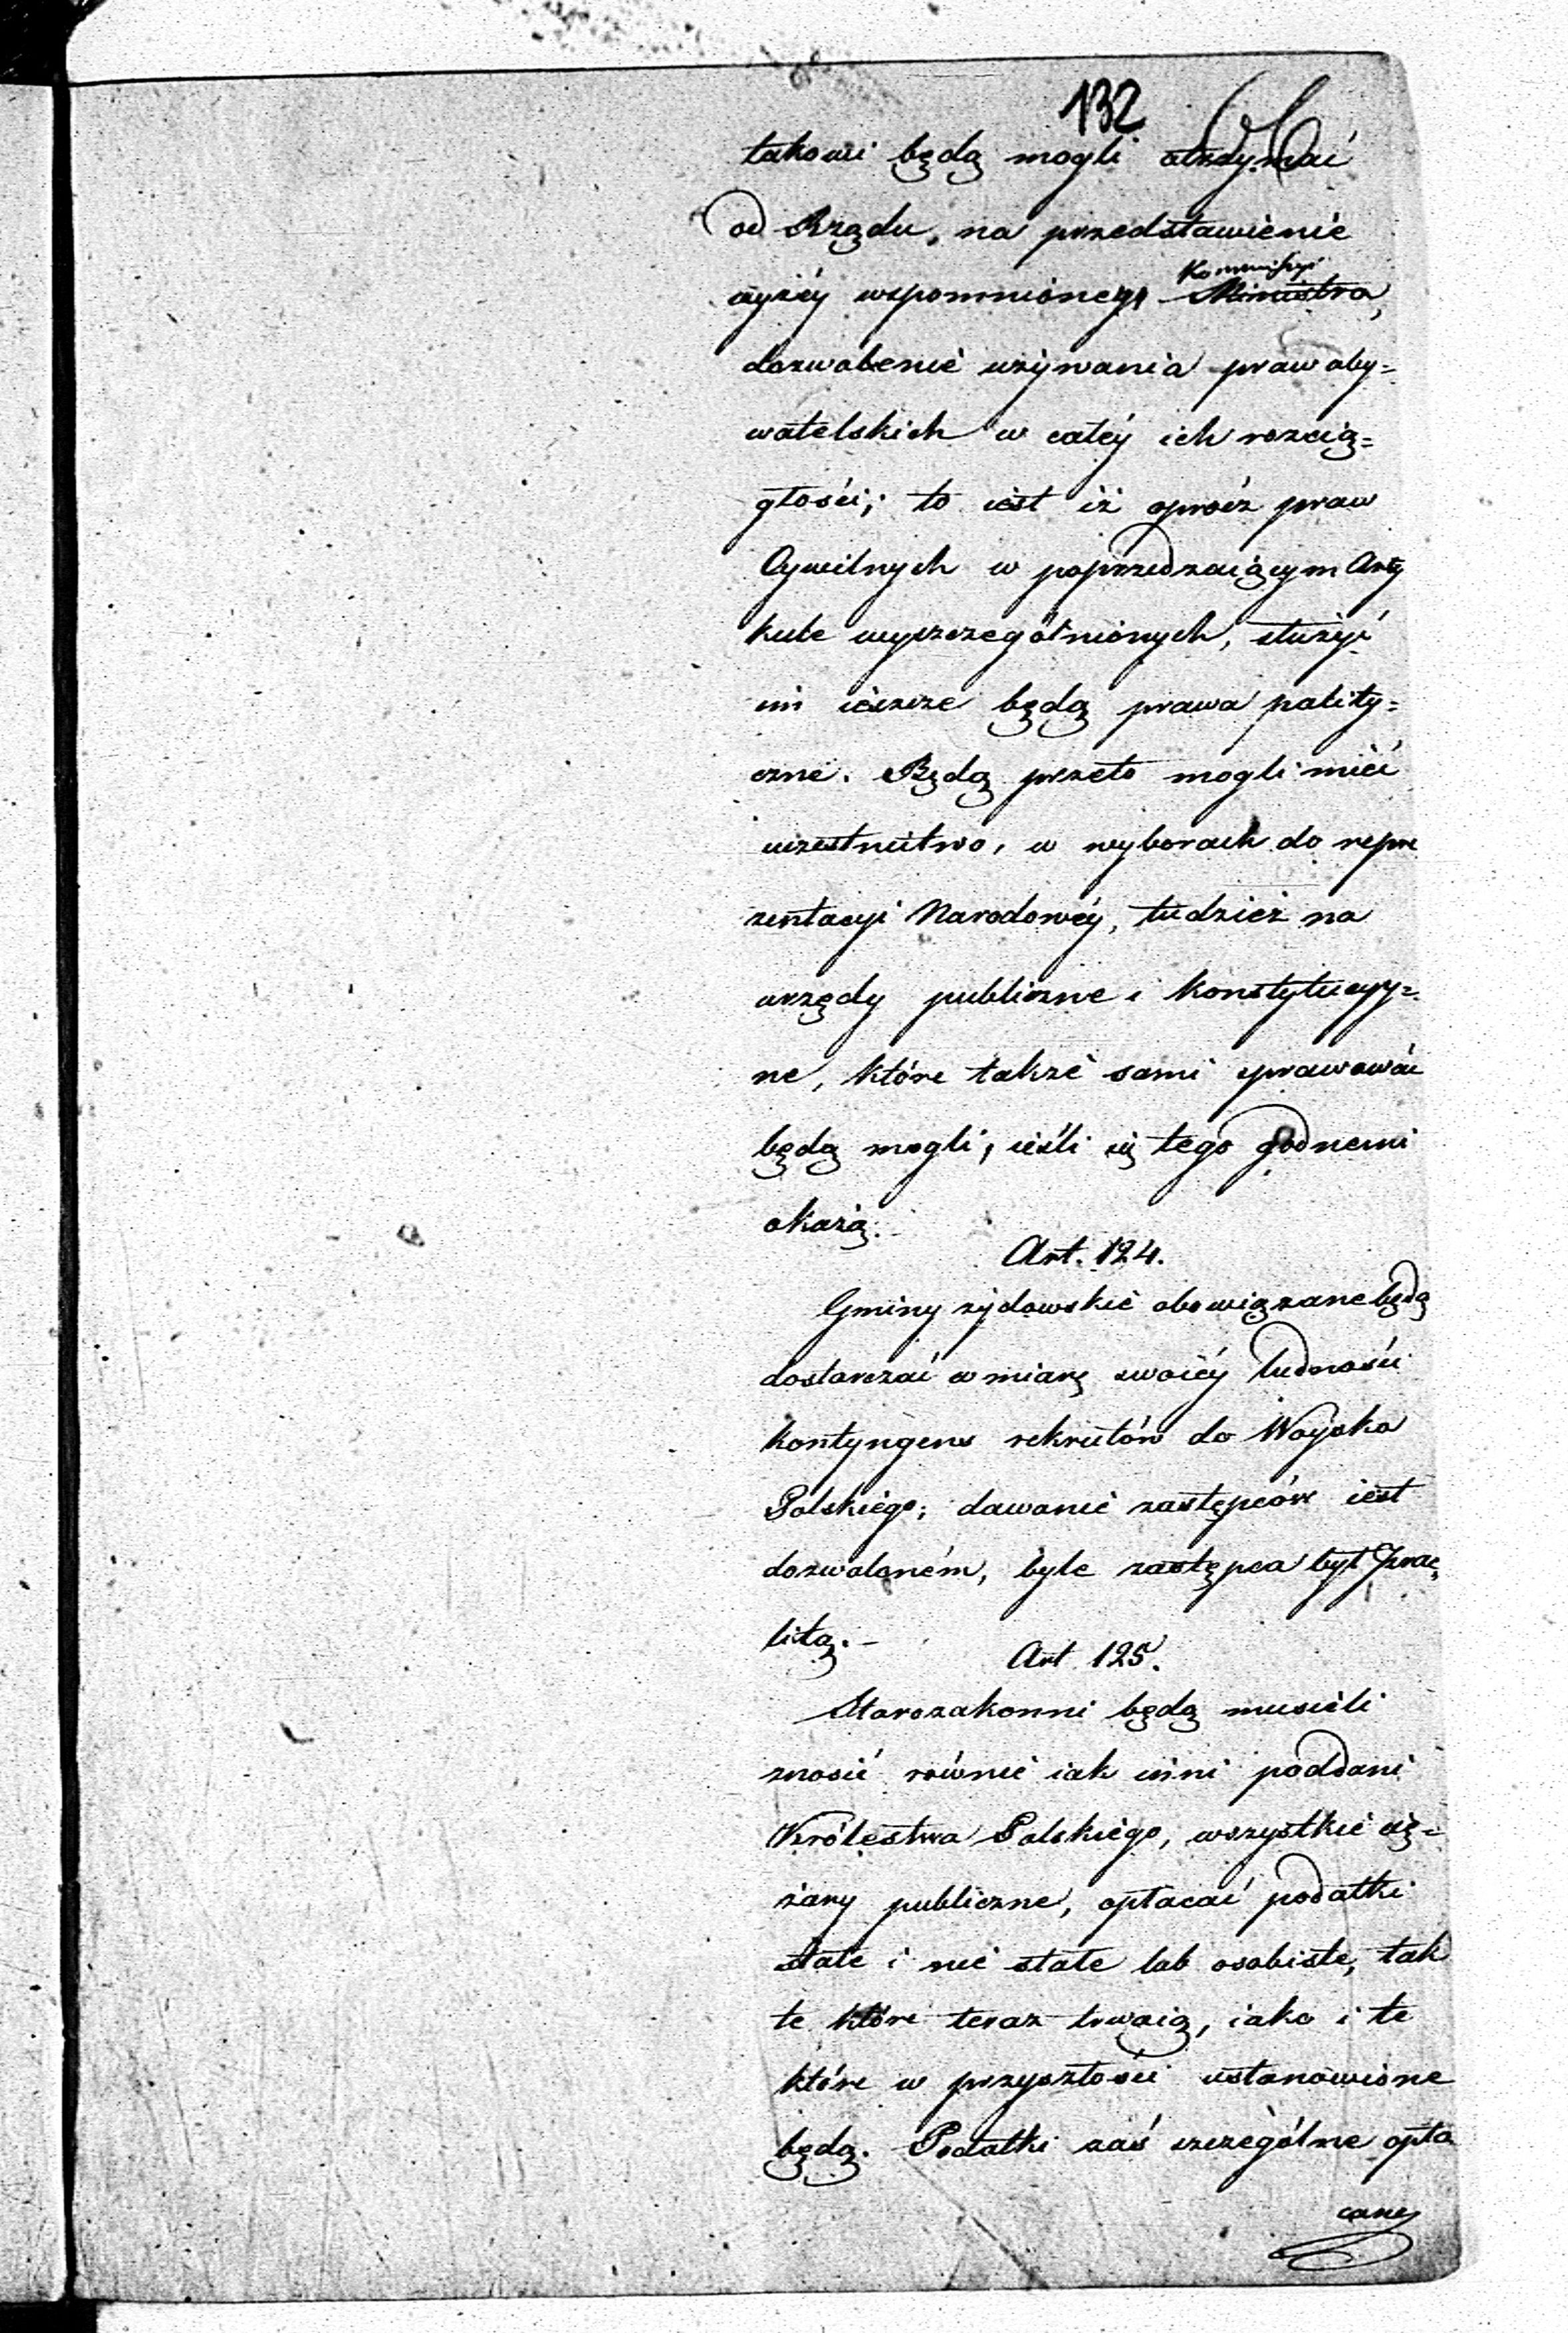 132
takowi będą mogli otrzymać
od Rządu, na przedstawienie
Kommissyi
wyżéy wspomnionego Ministra,
dozwolenie używania praw oby=
watelskich w całéy ich rozcią=
głości; to iest iż oprócz praw
Cywilnych w poprzedzaiącym Arty
kule wyszczególnionych, służyć
im ieszcze będą prawa polity=
czne. Będą przeto mogli mieć
uczestnictwo, w wyborach do repre
zentacyi Narodowéy, tudzież na
urzędy publiczne i konstytucyy=
ne, które także sami sprawować
będą mogli, ieśli się tego godnemi
okażą.
Art. 124.
Gminy żydowskie obowiązane będą
dostarczać w miarę swoiéy ludności
kontyngens rekrutów do Woyska
Polskiego; dawanie zastępców iest
dozwoloném, byle zastępca był Izrae
litą. -
Art 125.
Starozakonni będą musieli
znosić równie iak inni poddani
Królestwa Polskiego, wszystkie cię=
żary publiczne, opłacać podatki
stałe i nie stałe lub osobiste, tak
te które teraz trwaią, iako i te
które w przyszłości ustanowione
będą. Podatki zaś szczególne opła
cane